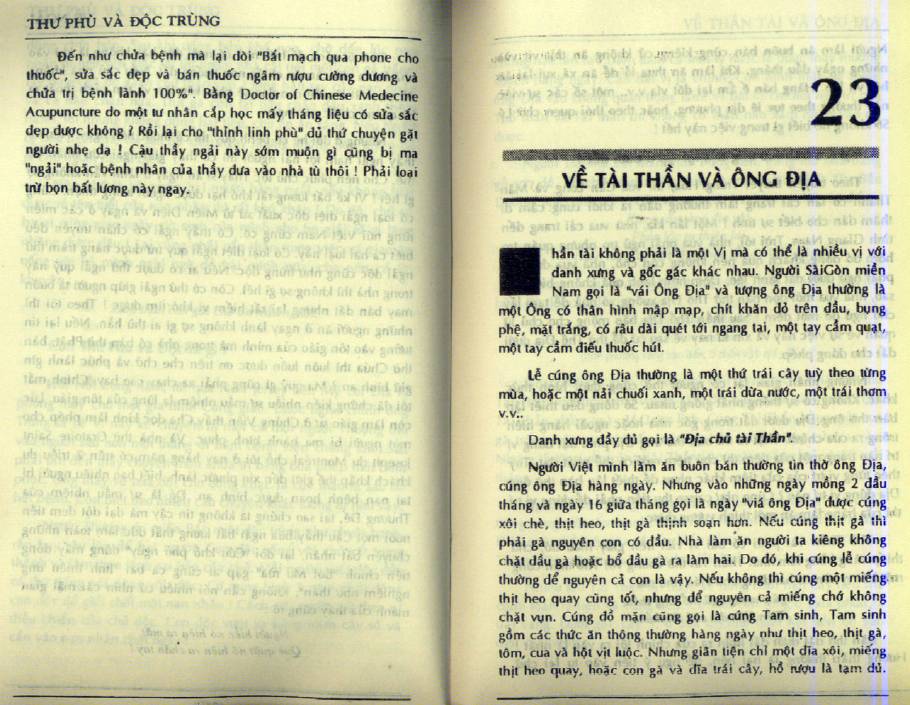 THƯ PHÙ VÀ ĐỘC TRÙNG
Đến như chửa bệnh mà lại đòi "Bắt mạch qua phone cho
thuốc", sửa sắc đẹp và bán thuốc ngâm rượu cường dương và
chửa trị bệnh lành 100%". Bằng Doctor of Chinese Medecine
Acupuncture do một tư nhân cấp học mấy tháng liệu có sửa sắc
đẹp được không ? Rồi lại cho "thỉnh linh phù" đủ thứ chuyện gãt
người nhẹ dạ ! Cậu thầy ngải này sớm muộn gì cũng bị ma
"ngải" hoặc bệnh nhân của thầy đưa vào nhà tù thôi ! Phải loại
trừ bọn bất lương này ngay.
23
VỀ TÀI THẦN VÀ ÔNG ĐỊA
hần tài không phải là một Vị mà có thể là nhiều vị với
danh xưng và gốc gác khác nhau. Người SàiGòn miền
Nam gọi là "vái Ông Địa" và tượng ông Địa thường là
một Ông có thân hình mập mạp, chít khăn đỏ trên đầu, bụng
phệ, mặt trắng, có râu dài quét tới ngang tai, một tay cầm quạt,
một tay cầm điếu thuốc hút.
Lễ cúng ông Địa thường là một thứ trái cây tuỳ theo từng
mùa, hoặc một nải chuối xanh, một trái dừa nước, một trái thơm
v.v..
Danh xưng đầy đủ gọi là "Địa chủ tài Thần".
Người Việt mình làm ăn buôn bán thường tin thờ ông Địa,
cúng ông Địa hàng ngày. Nhưng vào những ngày mồng 2 đầu
tháng và ngày 16 giữa tháng gọi là ngày "viá ông Địa" được cúng
xôi chè, thịt heo, thịt gà thịnh soạn hơn. Nếu cúng thịt gà thì
phải gà nguyên con có đầu. Nhà làm ăn người ta kiêng không
chặt đầu gà hoặc bổ đầu gà ra làm hai. Do đó, khi cúng lễ cúng
thường để nguyên cả con là vậy. Nếu không thì cúng một miếng
thịt heo quay cũng tốt, nhưng để nguyên cả miếng chớ không
chặt vụn. Cúng đồ mặn cũng gọi là cúng Tam sinh, Tam sinh
gồm các thức ăn thông thường hàng ngày như thịt heo, thịt gà,
tôm, cua và hột vịt luộc. Nhưng giản tiện chỉ một dĩa xôi, miếng
thịt heo quay, hoặc con gà và dĩa trái cây, hồ rượu là tạm đủ.